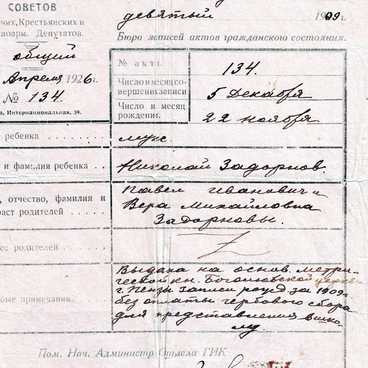 СОВЕТОВ
чих, Крестьянских и
ноарм. Депутатов.
девятый 1909.
Бюро записей актов гражданского состояния.
общий
Апреля 1926 г.
№ 134.
а, Интернациональная, 39.
№ акта. 134.
Число и месяц совершения записи 5 Декабря
Число и месяц рождения. 22 ноября
ребенка муж
и фамилия ребенка Николай Задорнов.
, отчество, фамилия и
раст родителей Павел Иванович и
Вера Михайловна
Задорновы.
ес родителей
Выдана на основ. метри-
ческой кн. Богоявленской церкви
г. Пенза записи рожд за 1909 г.
ые примечания. без оплаты гербового сбора
для представления в шко-
лу
Пом. Нач. Админист Отдела ГИК